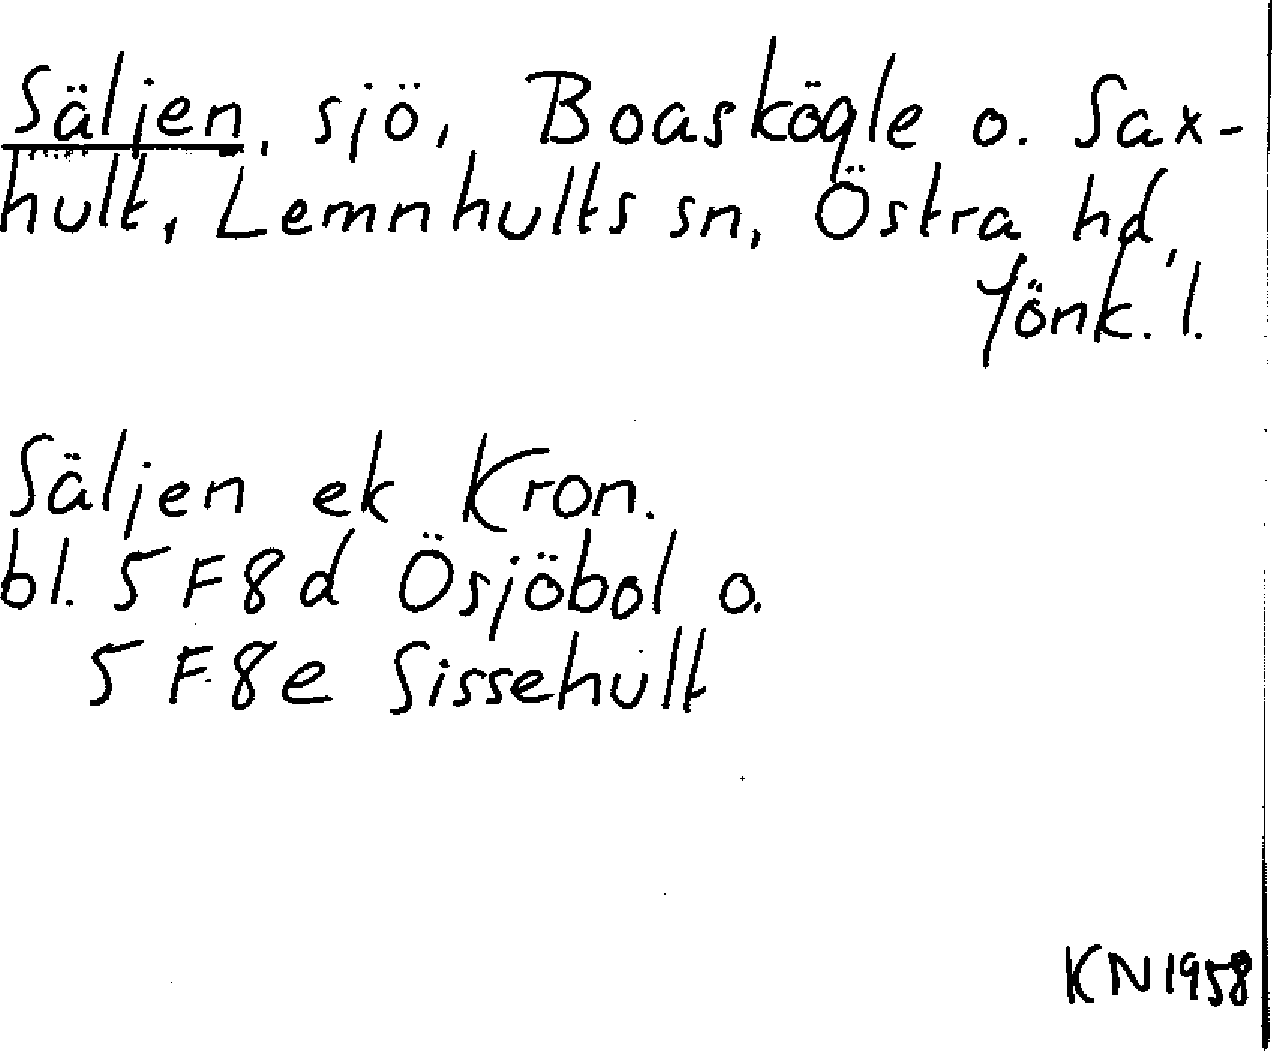 Säljen, sjö, Boasköqle o. Sax-
hult, Lemnhults sn, Östra hd,
Jönk. l.
Säljen ek Kron.
bl. 5 F 8 d Ösjöbol o.
5 F 8 e Sissehult
KN 1958